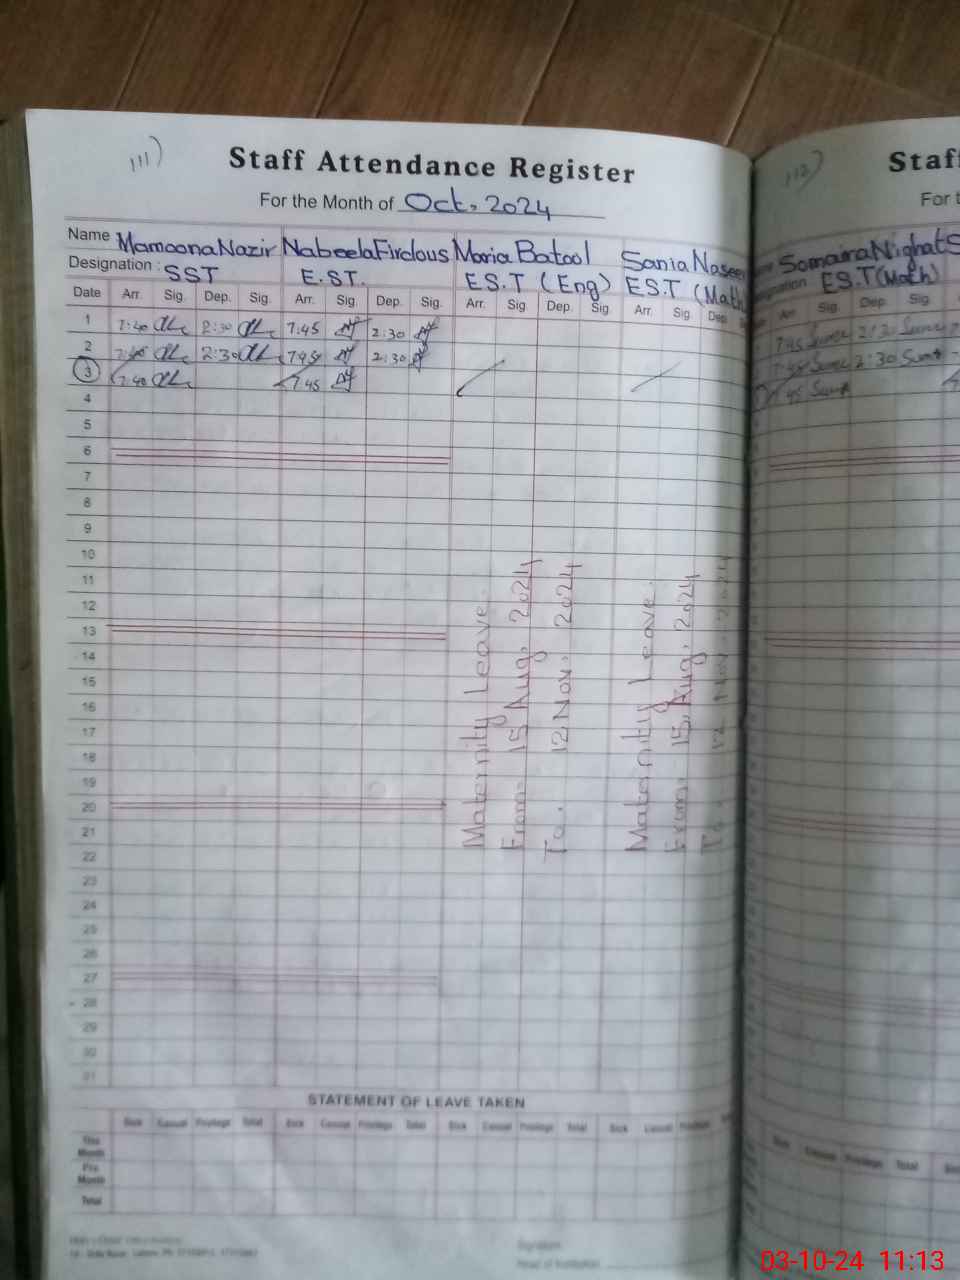 111)
Staff Attendance Register
For the Month of Oct. 2024
Name Mamoona Nazir Nabeela Firdous Maria Batool Sania Naseer
Designation : SST E.ST. E.S.T (Eng) E.S.T (Math
Date Arr. Sig. Dep. Sig. Arr. Sig. Dep. Sig. Arr. Sig Dep. Sig. Arr. Sig. Dep.
1 7:40 2:30 7:45 2:30
2 7:40 2:30 7:45 2:30
3 7:40 7:45
4
5
6
7
8
9
10
11
12
13
14
15
16
17
18
19
20
21
22
23
24
25
26
27
28
29
30
31
Maternity Leave.
From 15 Aug, 2024
To. 12 Nov. 2024
Maternity Leave.
From 15 Aug, 2024
To. 12 Nov. 2024
STATEMENT OF LEAVE TAKEN
Sick Casual Privilege Total Sick Casual Privilege Total Sick Casual Privilege Total Sick Casual Privilege
This Month
Pre Month
Total
Signature
Head of Institution
112)
Staff
For t
Somaira Nighat S
ignation E.S.T (Math)
Arr Sig. Dep. Sig.
7:45 2:30
7:45 2:30
7:45
Sick Casual Privilege Total
03-10-24 11:13